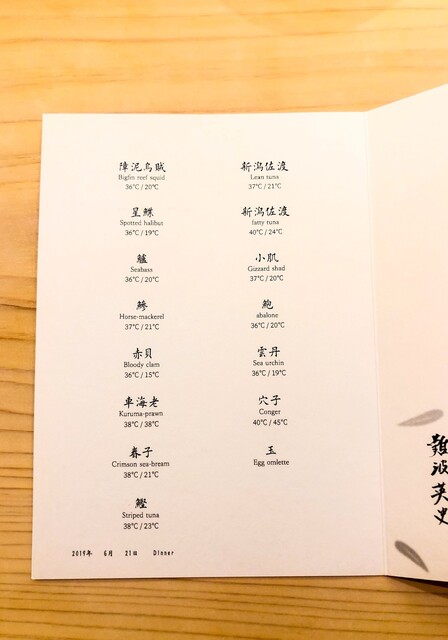 障泥烏賊
Bigfin reef squid
36℃/20℃
星鰈
Spotted halibut
36℃/19℃
鱸
Seabass
36℃/20℃
鯵
Horse-mackerel
37℃/21℃
赤貝
Bloody clam
36℃/15℃
車海老
Kuruma-prawn
38℃/38℃
春子
Crimson sea-bream
38℃/21℃
鰹
Striped tuna
38℃/23℃
新潟佐渡
Lean tuna
37℃/21℃
新潟佐渡
fatty tuna
40℃/24℃
小肌
Gizzard shad
37℃/20℃
鮑
abalone
36℃/20℃
雲丹
Sea urchin
36℃/19℃
穴子
Conger
40℃/45℃
玉
Egg omlette
2019年 6月 21日 Dinner
難波英史